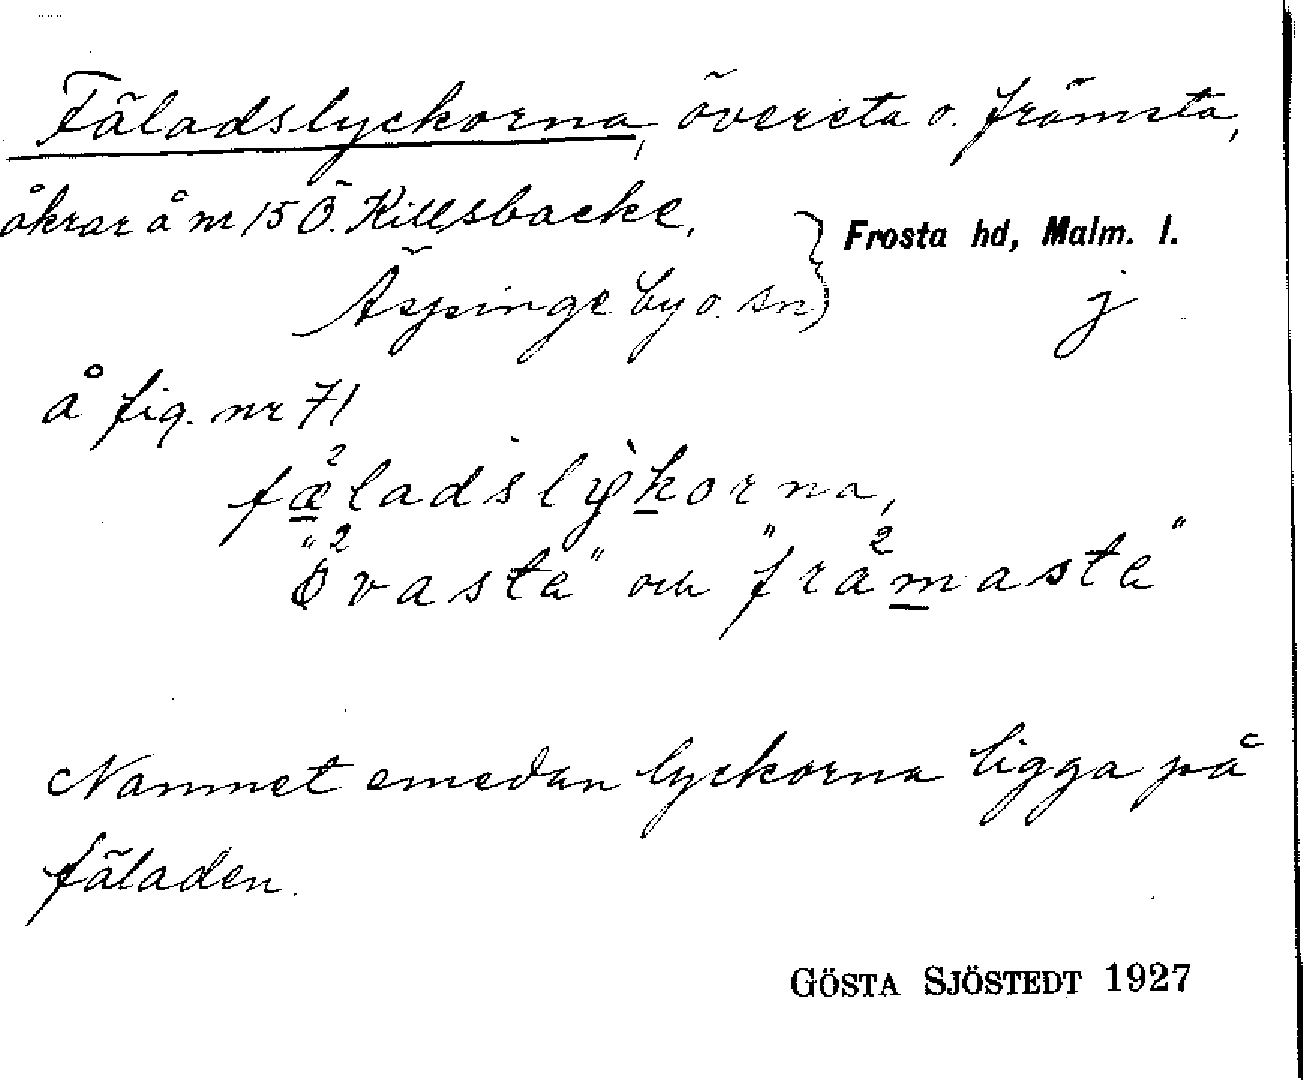 Fäladslyckorna, översta o. främsta,
åkrar å nr 15 Ö. Killsbacke,
Äspinge by o. sn } Frosta hd, Malm. l.
j
å fig. nr 71
fæ²ladslỳkorna,
"ö²vasta" och "frä²masta"
Namnet emedan lyckorna ligga på
fäladen.
GÖSTA SJÖSTEDT 1927